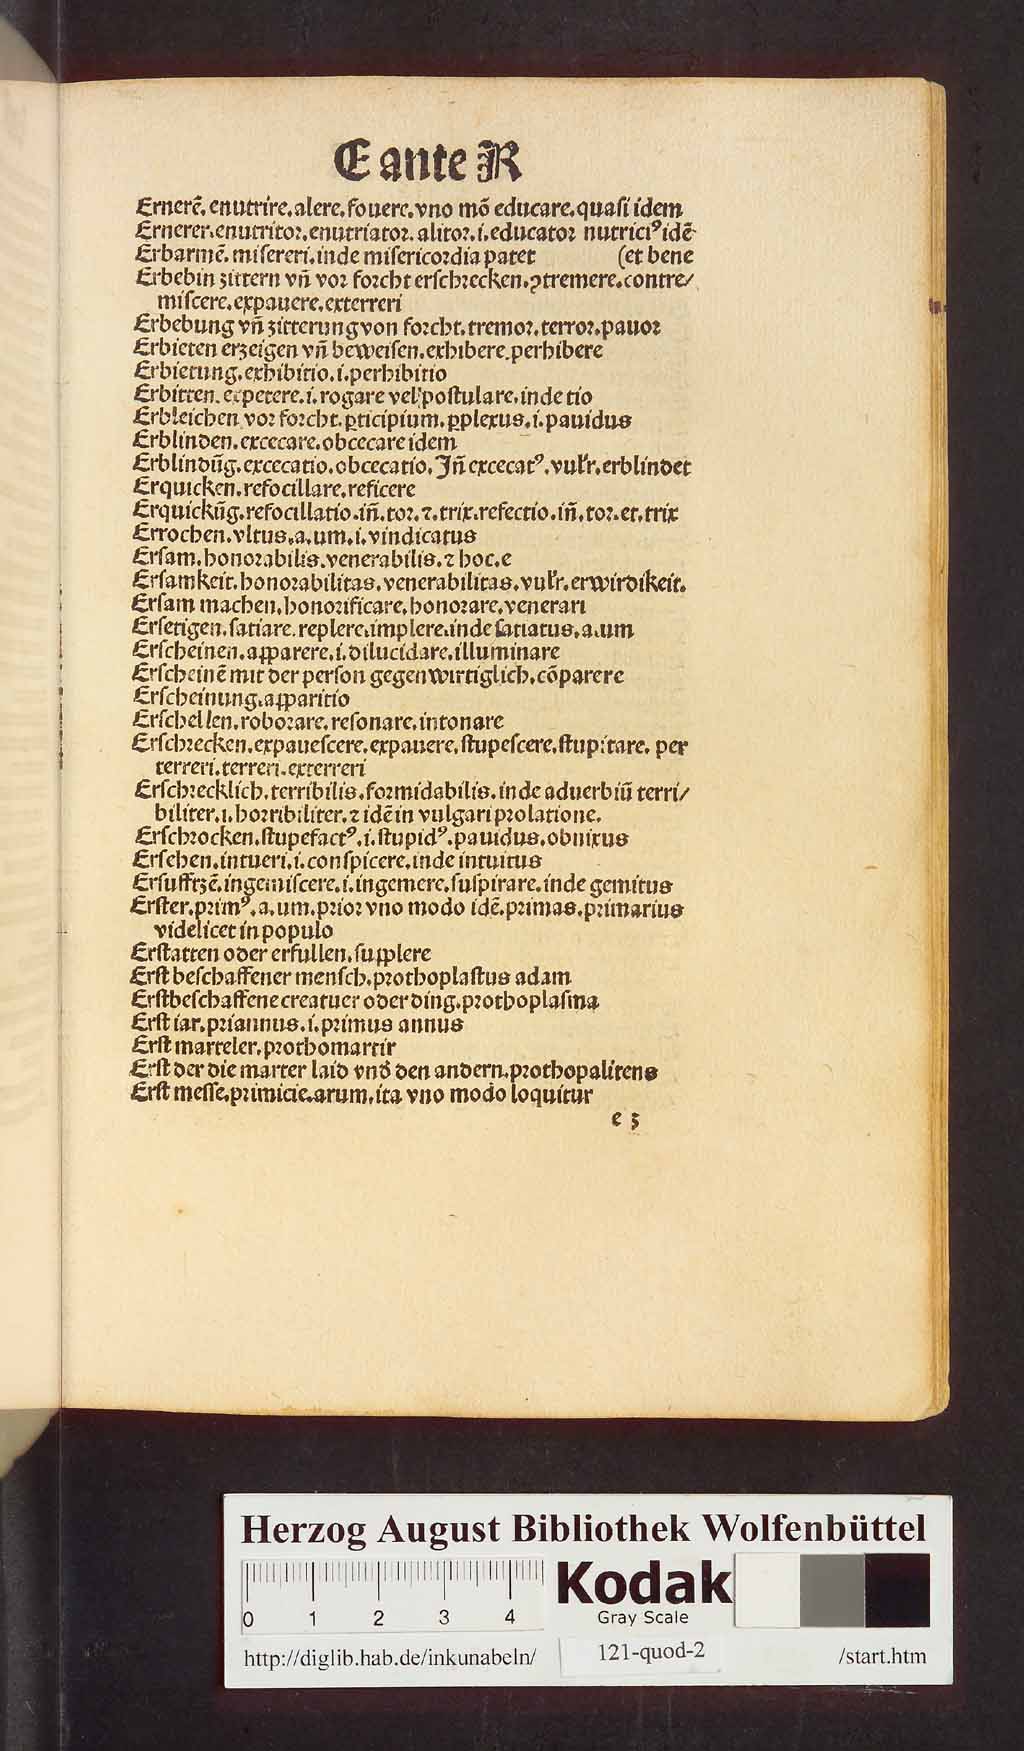 E ante R
Ernerē. enutrire. alere. fouere. vno mō educare. quasi idem
Ernerer. enutritor. enutriator. alitor. i. educator nutriciꝰ idē
Erbarmē. misereri. inde misericordia patet (et bene
Erbebin zittern vñ vor forcht erschrecken. ꝯtremere. contre/
miscere. expauere. exterreri
Erbebung vñ zitterung von forcht. tremor. terror. pauor
Erbieten erzeigen vñ beweisen. exhibere. perhibere
Erbietung. exhibitio. i. perhibitio
Erbitten. expetere. i. rogare vel postulare. inde tio
Erbleichen vor forcht. ꝑticipium. ꝑplexus. i. pauidus
Erblinden. excecare. obcecare idem
Erblindūg. excecatio. obcecatio. Jñ excecatꝰ. vulr. erblindet
Erquicken. refocillare. reficere
Erquickūg. refocillatio. iñ. tor. ⁊. trix. refectio. iñ. tor. et. trix
Errochen. vltus. a. um. i. vindicatus
Ersam. honorabilis. venerabilis. ⁊ hoc. e
Ersamkeit. honorabilitas. venerabilitas. vulr. erwirdikeit.
Ersam machen. honorificare. honorare. venerari
Ersetigen. satiare. replere. implere. inde satiatus. a. um
Erscheinen. apparere. i. dilucidare. illuminare
Erscheinē mit der person gegenwirtiglich. cōparere
Erscheinung. apparitio
Erschellen. roborare. resonare. intonare
Erschrecken. expauescere. expauere. stupescere. stupitare. per
terreri. terreri. exterreri
Erschrecklich. terribilis. formidabilis. inde aduerbiū terri/
biliter. i. horribiliter. ⁊ idē in vulgari prolatione.
Erschrocken. stupefactꝰ. i. stupidꝰ. pauidus. obnixus
Ersehen. intueri. i. conspicere. inde intuitus
Ersufftzē. ingemiscere. i. ingemere. suspirare. inde gemitus
Erster. primꝰ. a. um. prior vno modo idē. primas. primarius
videlicet in populo
Erstatten oder erfullen. supplere
Erst beschaffener mensch. prothoplastus adam
Erstbeschaffene creatuer oder ding. prothoplasma
Erst iar. priannus. i. primus annus
Erst marteler. prothomartir
Erst der die marter laid vnd den andern. prothopalitens
Erst messe. primicie. arum. ita vno modo loquitur
e 3
Herzog August Bibliothek Wolfenbüttel
0 1 2 3 4
Kodak
Gray Scale
http://diglib.hab.de/inkunabeln/ 121-quod-2 /start.htm